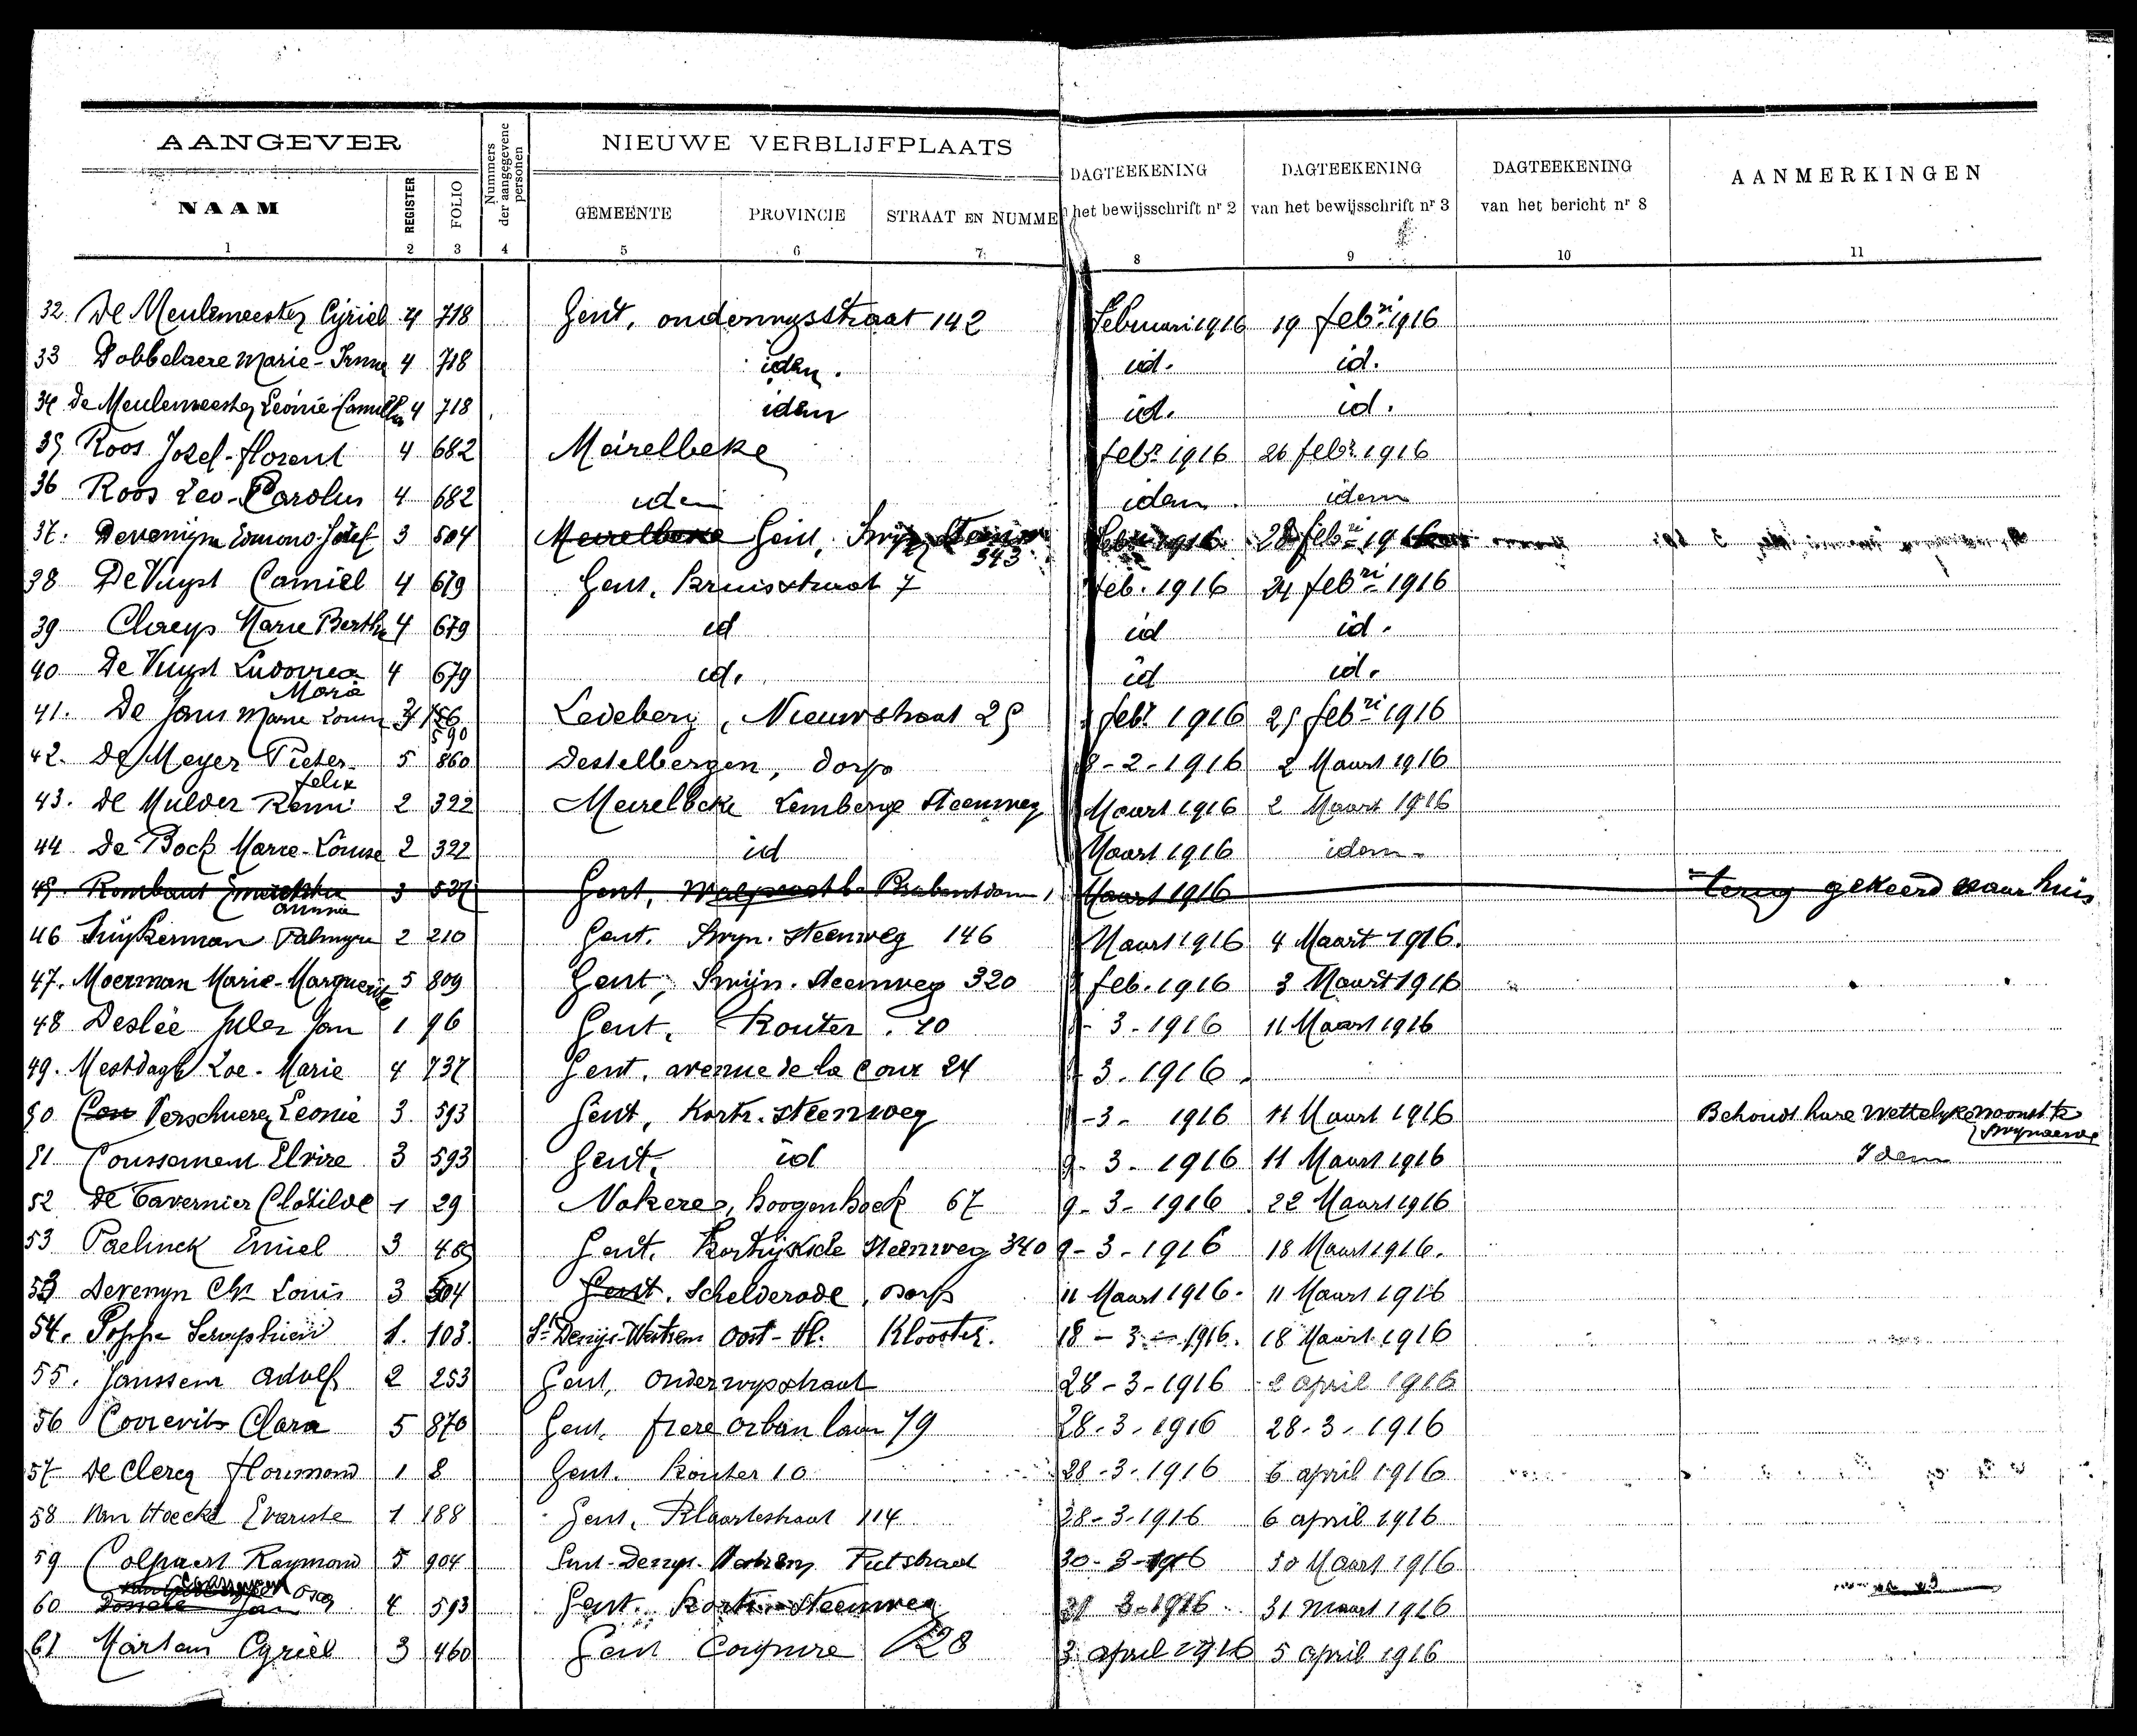 AANGEVER
NIEUWE VERBLIJFPLAATS
NAAM REGISTER FOLIO Nummers der aangegevene personen GEMEENTE PROVINCIE STRAAT EN NUMME DAGTEEKENING het bewijsschrift nr 2 DAGTEEKENING van het bewijsschrift nr 3 DAGTEEKENING van het bericht nr 8 AANMERKINGEN
1 2 3 4 5 6 7 8 9 10 11
32 De Meulemeester Cyriel 4 718 Gent, 142 Februari 1916 19 febri 1916
33 Dobbelaere Marie- 4 718 idem. id. id.
34 de Meulemeester Leonie-Camilla 4 718 idem id. id.
35 Roos Jozef-florent 4 682 Meirelbeke febr 1916 26 febr 1916
36 Roos Leo-Carolus 4 682 idem idem idem
37. Devenijn Edmond-Jozef 3 504 Meirelbeke Gent, Swijn. Steenw 343 1916 28 febri 1916
38 De Vuyst Camiel 4 679 Gent, Kruisstraat 7 feb. 1916 24 febri 1916
39 Claeys Marie Bertha 4 679 id id id.
40 De Vuyst Ludovica Maria 4 679 id. id id.
41. De Jans Marie Louise 590 Ledeberg, Nieuwstraat 25 febr 1916 25 febri 1916
42. De Meyer Pieter-felix 5 860 Destelbergen, dorp 8-2-1916 2 Maart 1916
43. De Mulder Remi 2 322 Meirelbeke Lemberge Steenweg Maart 1916 2 Maart 1916
44 De Bock Marie-Louise 2 322 id Maart 1916 idem
45. Rombaut 3 527 Gent, Brabantdam 1 Maart 1916 terug gekeerd naar huis
46 Tuijkerman Palmyre 2 210 Gent. Swyn. Steenweg 146 Maart 1916 4 Maart 1916.
47. Moerman Marie-Marguerite 5 809 Gent, Swijn. Steenweg 320 feb. 1916 3 Maart 1916
48 Deslée Jules Jan 1 96 Gent, Kouter. 10 3-1916 11 Maart 1916
49. Mestdagh Zoe-Marie 4 737 Gent, avenue de la Cour 24 3-1916.
50 Verschuere Leonie 3 593 Gent, Kortr. steenweg -3- 1916 11 Maart 1916 Behoudt hare Wettelyke woonst te Swynaerde
51 Coussement Elvire 3 593 Gent, id 9-3-1916 11 Maart 1916 Idem
52 De Tavernier Clotilde 1 29 Nokere, hoogenhoek 67 9-3-1916 22 Maart 1916
53 Paelinck Emiel 3 465 Gent. Kortrijksche Steenweg 340 9-3-1916 18 Maart 1916.
53 Devenyn Ch Louis 3 504 Gent, Schelderode, Dorp 11 Maart 1916. 11 Maart 1916
54. Poppe Seraphien 1. 103. St Denijs-Westrem Oost-Vl. Klooster. 18-3-1916. 18 Maart 1916
55. Janssem Adolf 2 253 Gent, Onderwysstraat 28-3-1916 2 april 1916
56 Clara 5 870 Gent, frere Orban laan 79 28-3-1916 28-3-1916
57 De Clercq Florimond 1 8 Gent. Kouter 10 28-3-1916 6 april 1916
58 Van Hoecke Evariste 1 188 Gent, Klaartestraat 114 28-3-1916 6 april 1916
59 Colpaert Raymond 5 904 Sint-Denys. Westrem Putstraat 30-3-1916 30 Maart 1916
60 4 593 Gent. Kortr. Steenweg 31 3-1916 31 maart 1916
61 Martens Cyriel 3 460 Gent Coupure 128 3 april 1916 5 april 1916